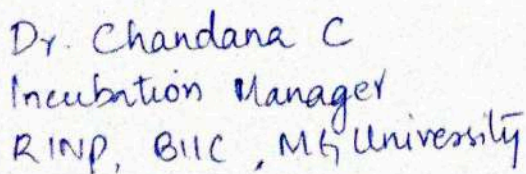 Dr. Chandana C
Incubation Manager
RINP, BIIC, MG University